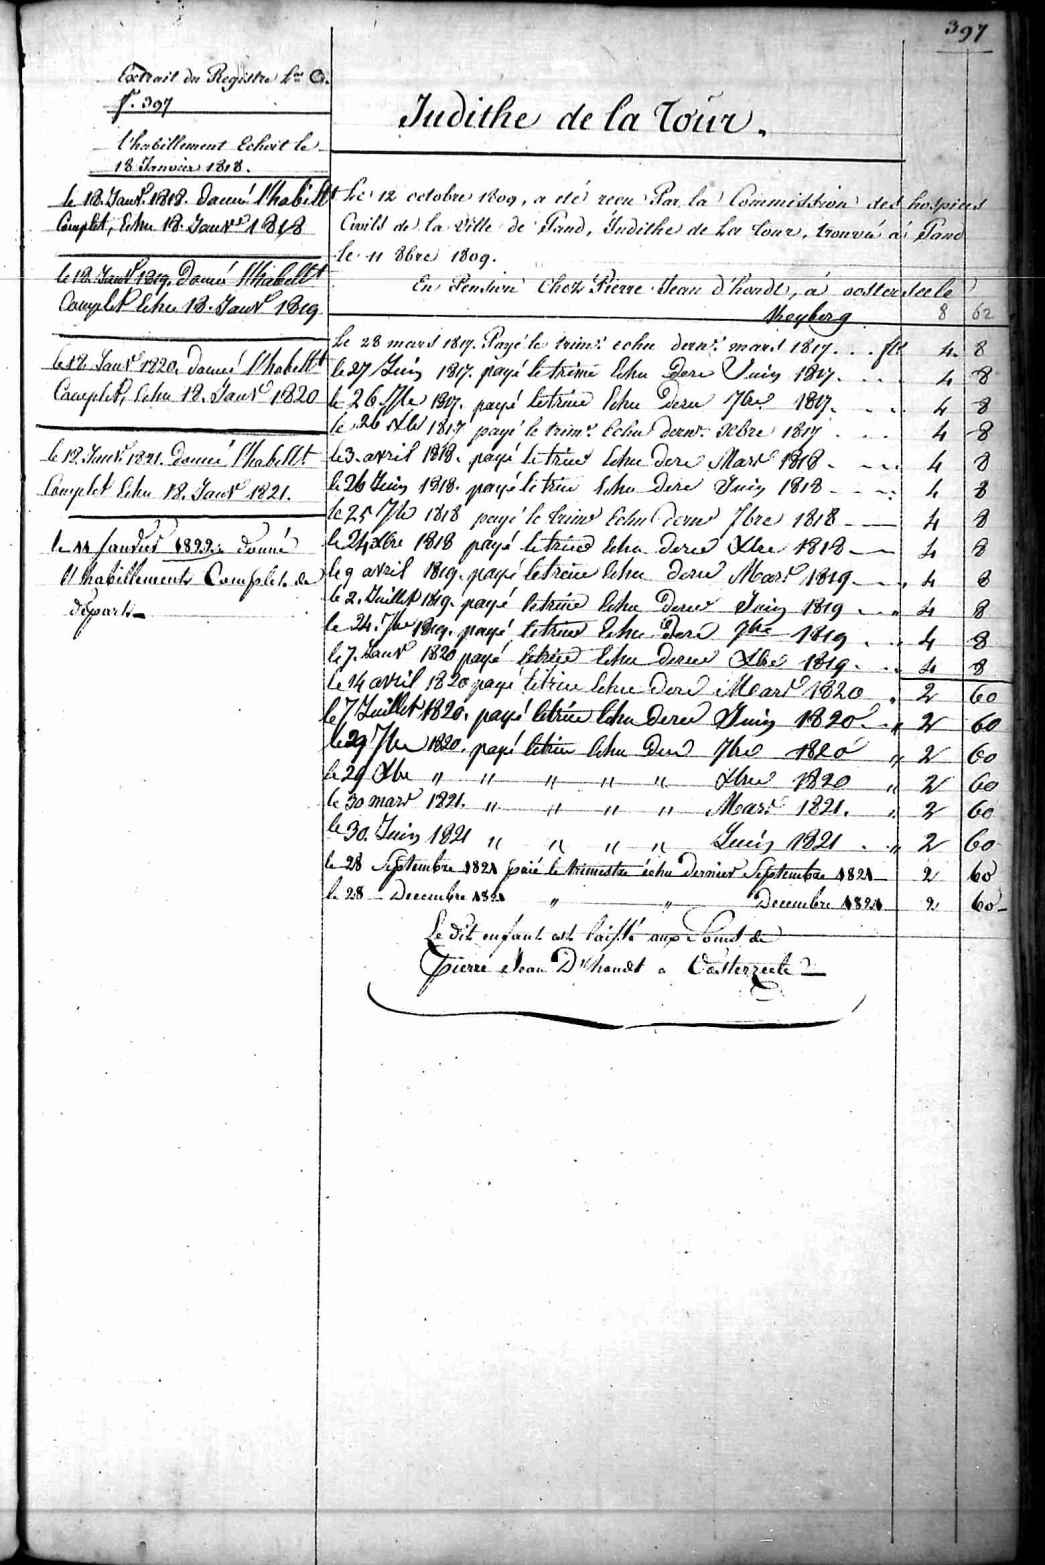 397
Extrait du Registre Lra C.
f. 397
l'habillement Echoit le
18 Janvier 1818.
le 18. Janvr. 1818. donné l'habillt
Complet, Echu 18. Janvr 1818
le 18. Janvr 1819. donné l'habillt
Complet Echu 18. Janvr 1819
le 18. Janvr 1820. donné l'habillt
Complet, Echu 18. Janvr 1820
le 18. Janvr. 1821. donné l'habillt
Complet Echu 18. Janvr 1821.
le 11 Janvier 1822. donné
l'habillements Complets de
départ
Judithe de la Tour.
Le 12 octobre 1809, a eté recu Par la Commission des hospices
Civils de la Ville de Gand, Judithe de La Tour, trouvée a Gand
le 11 8bre 1809.
En Pension Chéz Pierre Jean d'hondt, á oosterseele
8 62
Le 28 mars 1817. Payé le trimr. echu dernr. mars 1817. . . fll 4. 8
le 27 Juin 1817. payé le trime Echu dere Juin 1817. . . . 4 8
le 26 7bre 1817. payé le trime Echu dern 7bre 1817. . . . 4 8
le 26 Xbre 1817 payé le trimr. Echu dernr. Xbre 1817 . . . 4 8
le 3. avril 1818. payé le trime Echu dere Mars 1818. . . . 4 8
le 26 Juin 1818. payé le trime Echu dere Juin 1818 . . . 4 8
le 25 7bre 1818 payé le trimr Echu dernr 7bre 1818 4 8
le 24 Xbre 1818 payé le trime Echu dere Xbre 1818 4 8
le 9 avril 1819. payé le trime Echu dernr Mars 1819 4 8
le 2. Juillet 1819. payé le trime Echu dernr Juin 1819 . . " 4 8
le 24. 7bre 1819. payé le trime Echu dere 7bre 1819 . . 4 8
le 7. Janvr 1820 payé le trime Echu dernr Xbre 1819. . . 4 8
le 14 avril 1820 payé le trime Echu dere Mars 1820 " 2 60
le 7 Juillet 1820. payé le trime Echu dere Juin 1820. . " 2 60
le 29 7bre 1820. payé le trim Echu der 7bre 1820 " 2 60
le 29 Xbre " " " " " Xbre 1820 " 2 60
le 30 mars 1821. " " " " Mars 1821. " 2 60
le 30. Juin 1821 " " " " Juin 1821 . " 2 60
le 28 Septembre 1821 paié le trimestre échu dernier Septembre 1821 2 60
le 28 Decembre 1821 " " Decembre 1821 2 60
Le dit enfant est laissé aux Soins de
Pierre Jean D'hondt a Oosterzeele